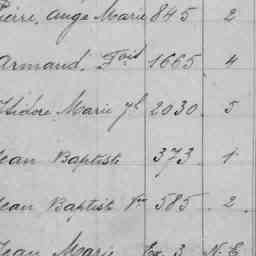 Pierre, Ange Marie 845 2
Armand, Fois 1665 4
Isidore Marie Jh 2030 5
Jean Baptiste 373 1
Jean Baptiste Vm 585 2
Jean Marie Ex. 3 N. E.